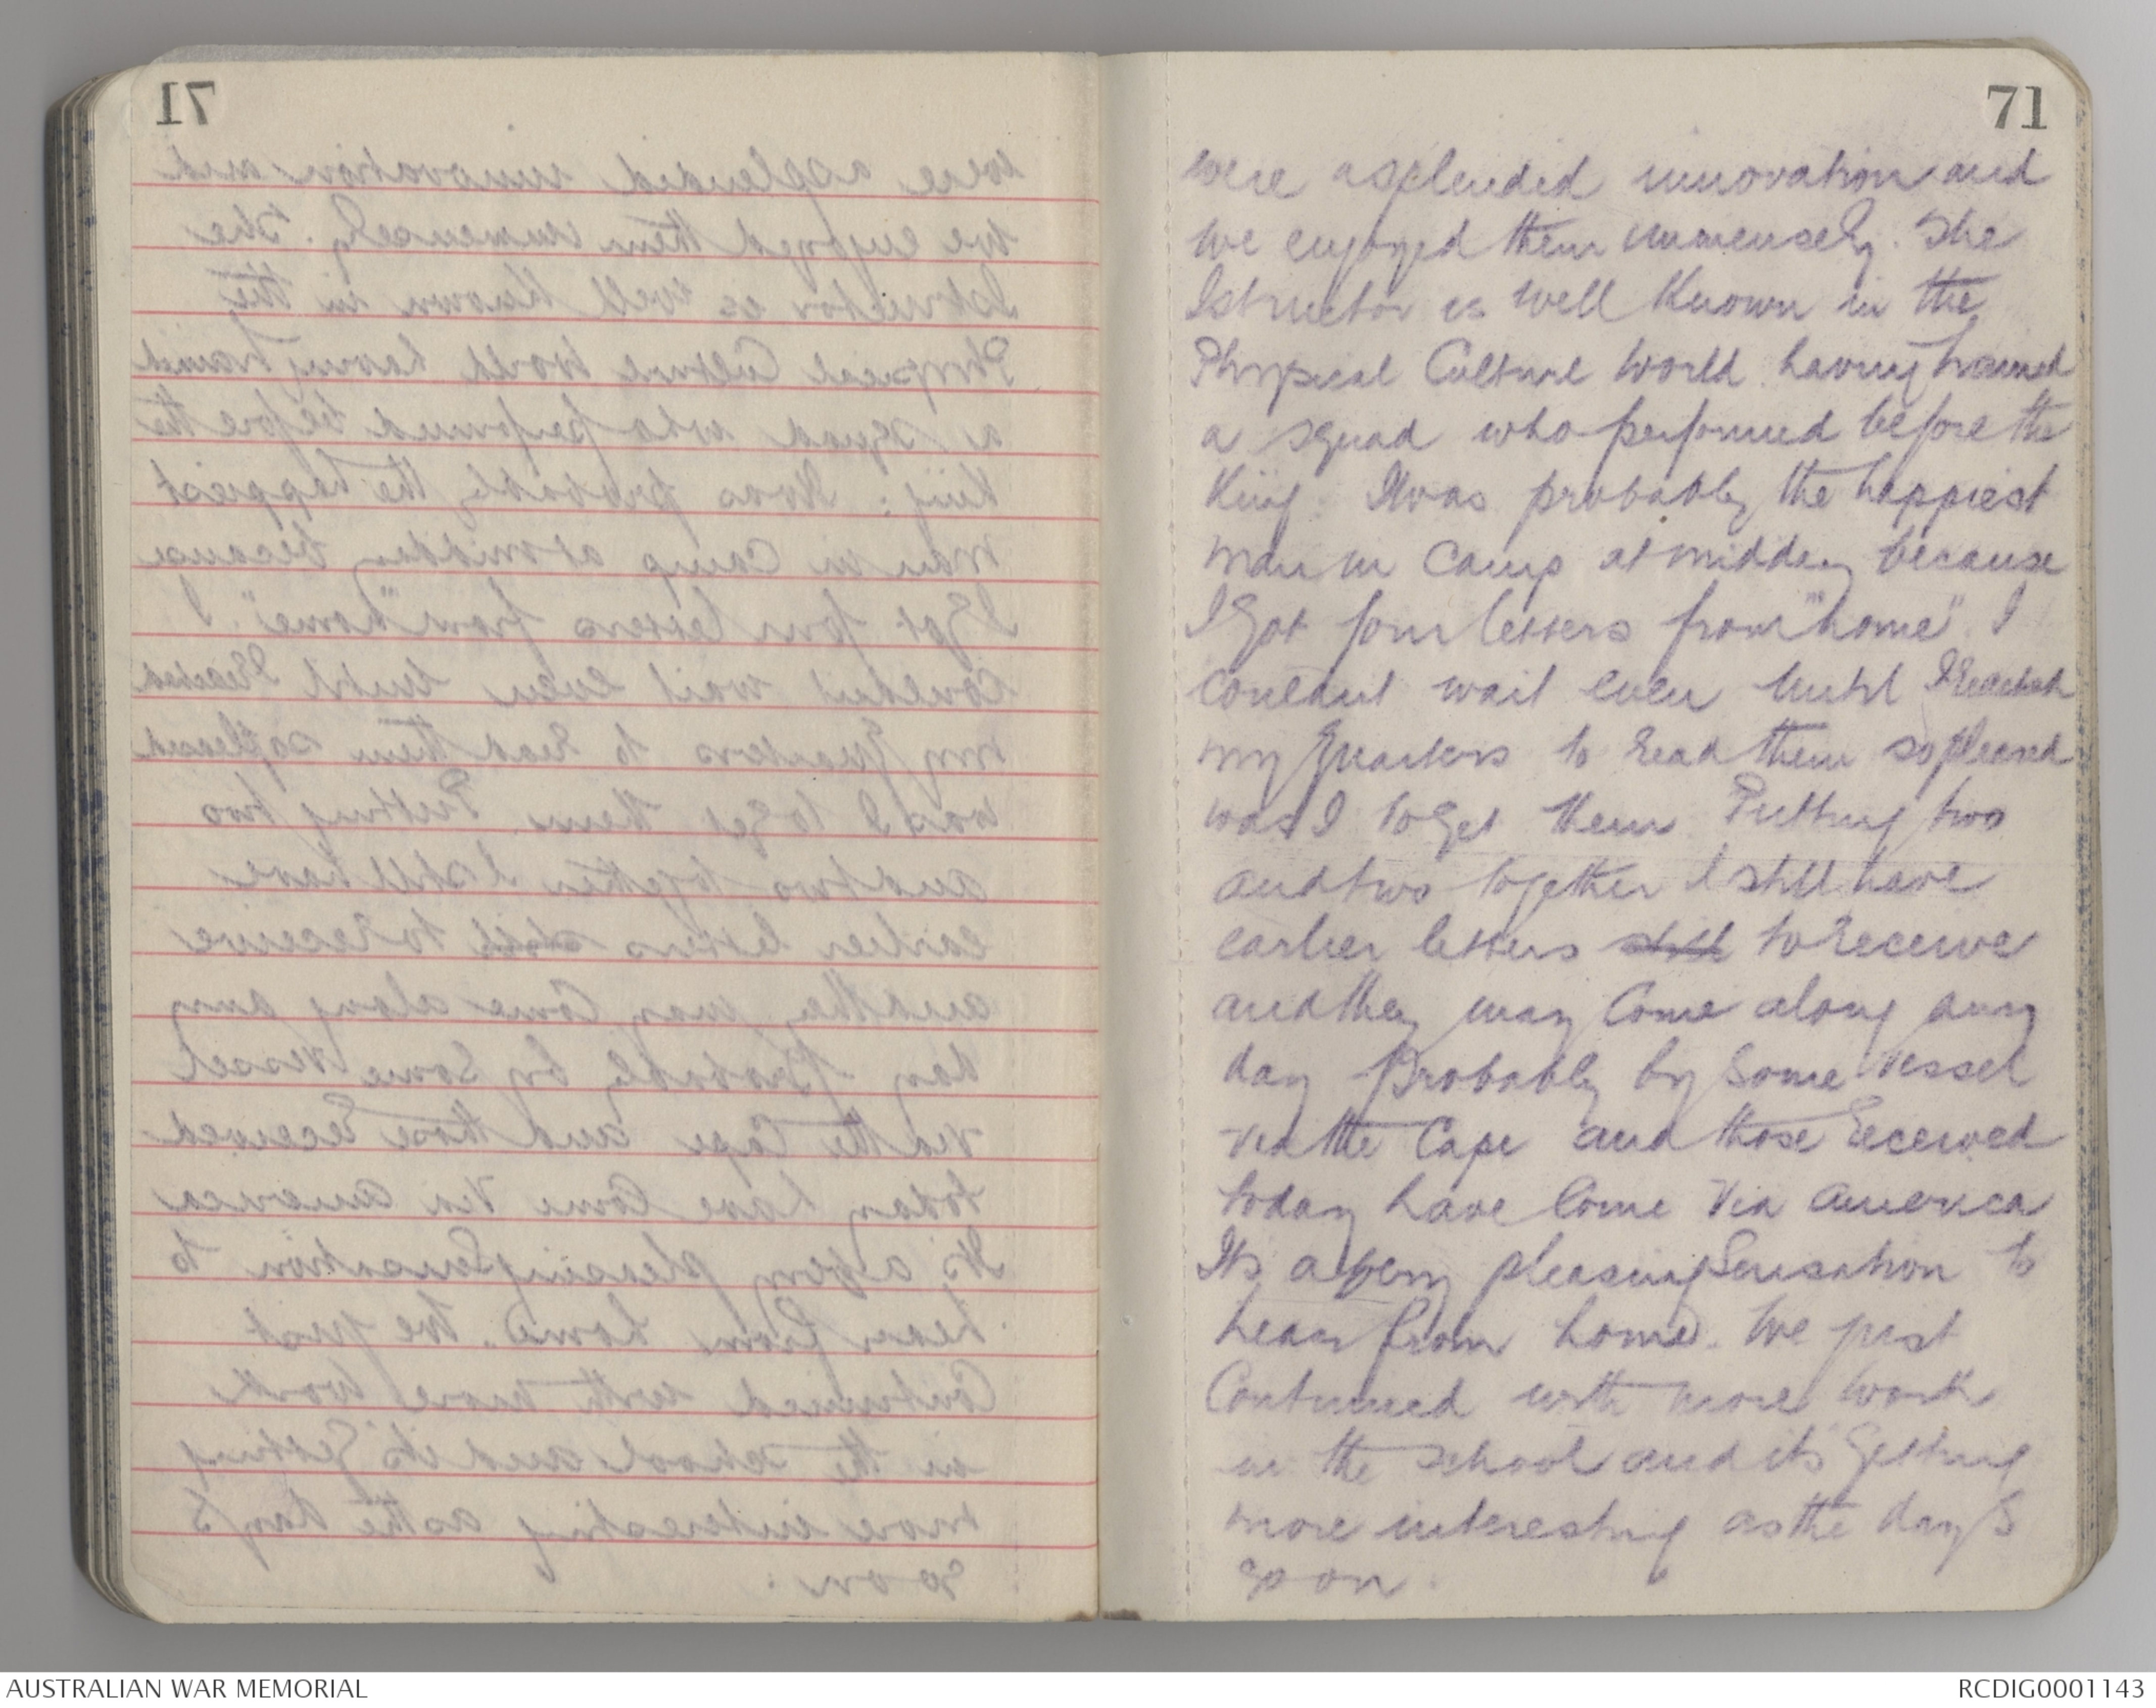 71
were a splendid innovation and
we enjoyed them immensely. The
Istructor is well known in the
Physical Culture world having trained
a squad who performed before the
King. I was probably the happiest
man in Camp at midday because
I got four letters from "home" I
couldnt wait even until I reached
my Quarters to read them so pleased
was I to get them Putting two
and two together I still have
earlier letters still to receive
and they may come along any
day Probably by some vessel
via the Cape and those received
today have come via America
Its a very pleasing sensation to
hear from home. We just
Continued with more work
in the school and its getting
more interesting as the days
go on.
AUSTRALIAN WAR MEMORIAL
RCDIG0001143